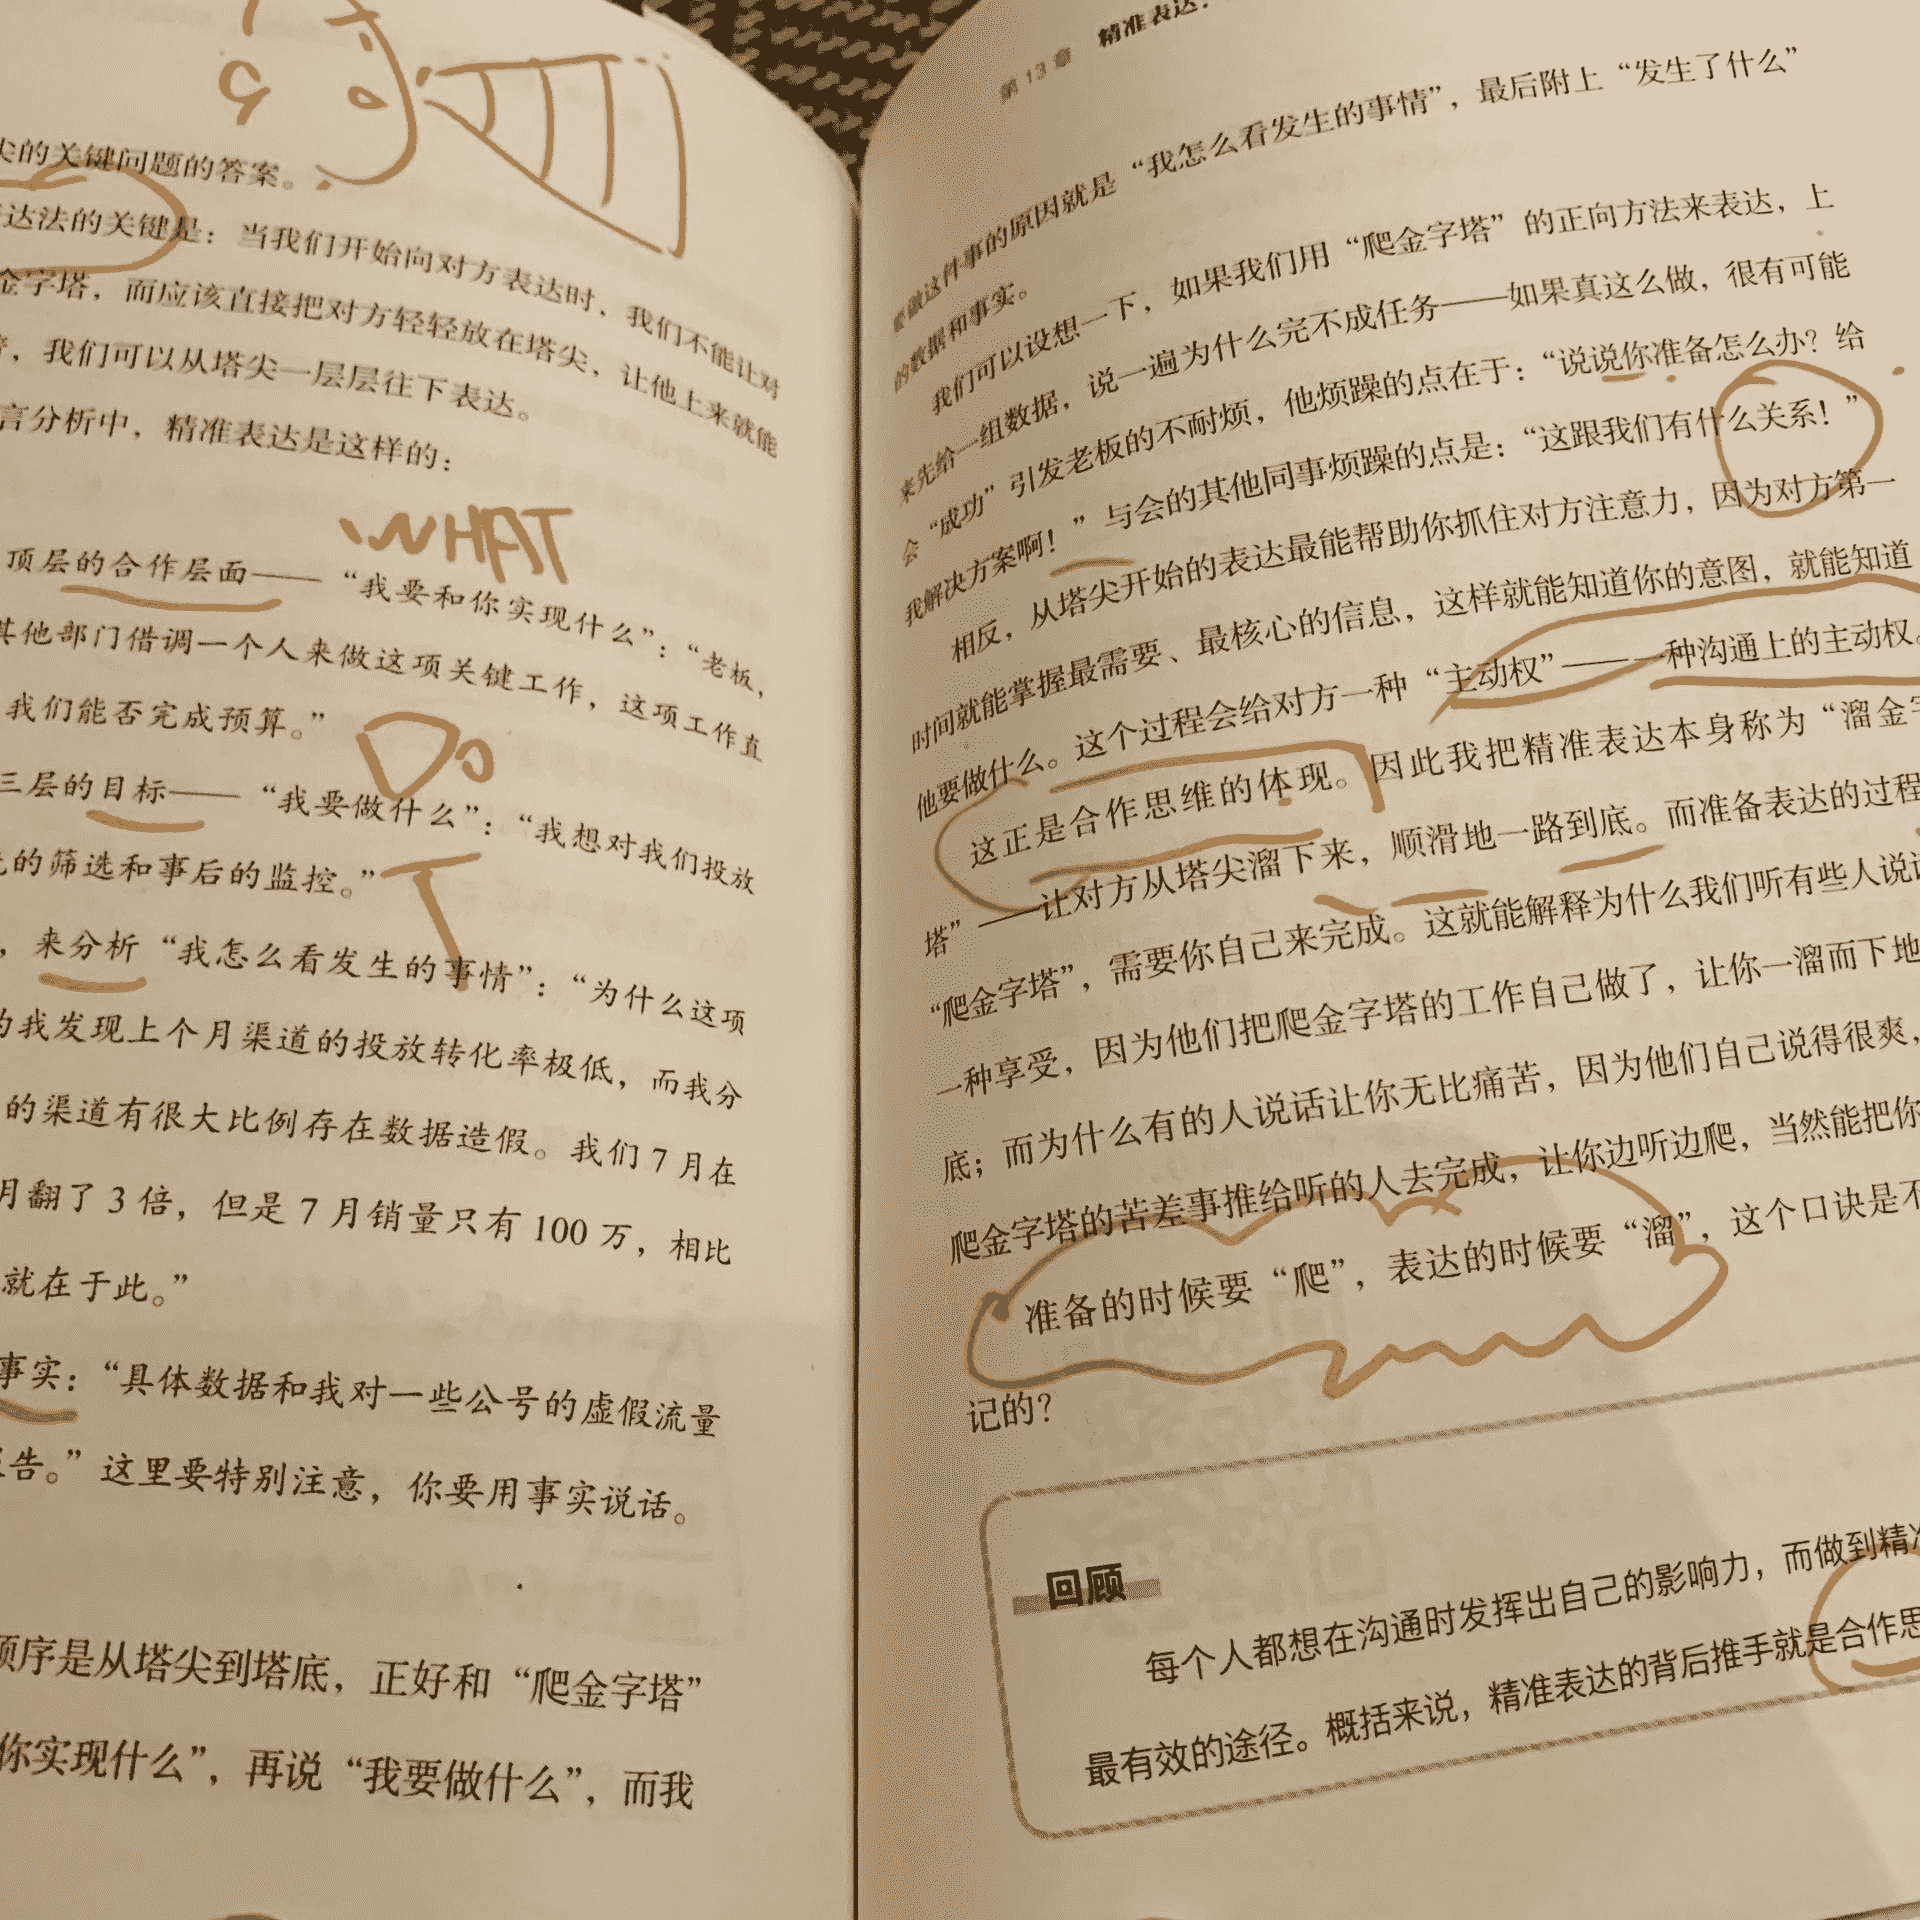 尖的关键问题的答案。
达法的关键是：当我们开始向对方表达时，我们不能让对
金字塔，而应该直接把对方轻轻放在塔尖，让他上来就能
，我们可以从塔尖一层层往下表达。
言分析中，精准表达是这样的：
WHAT
顶层的合作层面——“我要和你实现什么”：“老板，
其他部门借调一个人来做这项关键工作，这项工作直
我们能否完成预算。”
DO
三层的目标——“我要做什么”：“我想对我们投放
的筛选和事后的监控。”
，来分析“我怎么看发生的事情”：“为什么这项
为我发现上个月渠道的投放转化率极低，而我分
的渠道有很大比例存在数据造假。我们 7 月在
月翻了 3 倍，但是 7 月销量只有 100 万，相比
就在于此。”
事实：“具体数据和我对一些公号的虚假流量
告。”这里要特别注意，你要用事实说话。
顺序是从塔尖到塔底，正好和“爬金字塔”
你实现什么”，再说“我要做什么”，而我
第 13 章 精准表达：
要做这件事的原因就是“我怎么看发生的事情”，最后附上“发生了什么”
的数据和事实。
我们可以设想一下，如果我们用“爬金字塔”的正向方法来表达，上
来先给一组数据，说一遍为什么完不成任务——如果真这么做，很有可能
会“成功”引发老板的不耐烦，他烦躁的点在于：“说说你准备怎么办？给
我解决方案啊！”与会的其他同事烦躁的点是：“这跟我们有什么关系！”
相反，从塔尖开始的表达最能帮助你抓住对方注意力，因为对方第一
时间就能掌握最需要、最核心的信息，这样就能知道你的意图，就能知道
他要做什么。这个过程会给对方一种“主动权”——一种沟通上的主动权。
这正是合作思维的体现。因此我把精准表达本身称为“溜金字
塔”——让对方从塔尖溜下来，顺滑地一路到底。而准备表达的过程
“爬金字塔”，需要你自己来完成。这就能解释为什么我们听有些人说话
一种享受，因为他们把爬金字塔的工作自己做了，让你一溜而下地
底；而为什么有的人说话让你无比痛苦，因为他们自己说得很爽，
爬金字塔的苦差事推给听的人去完成，让你边听边爬，当然能把你
准备的时候要“爬”，表达的时候要“溜”，这个口诀是不
记的？
回顾
每个人都想在沟通时发挥出自己的影响力，而做到精准
最有效的途径。概括来说，精准表达的背后推手就是合作思